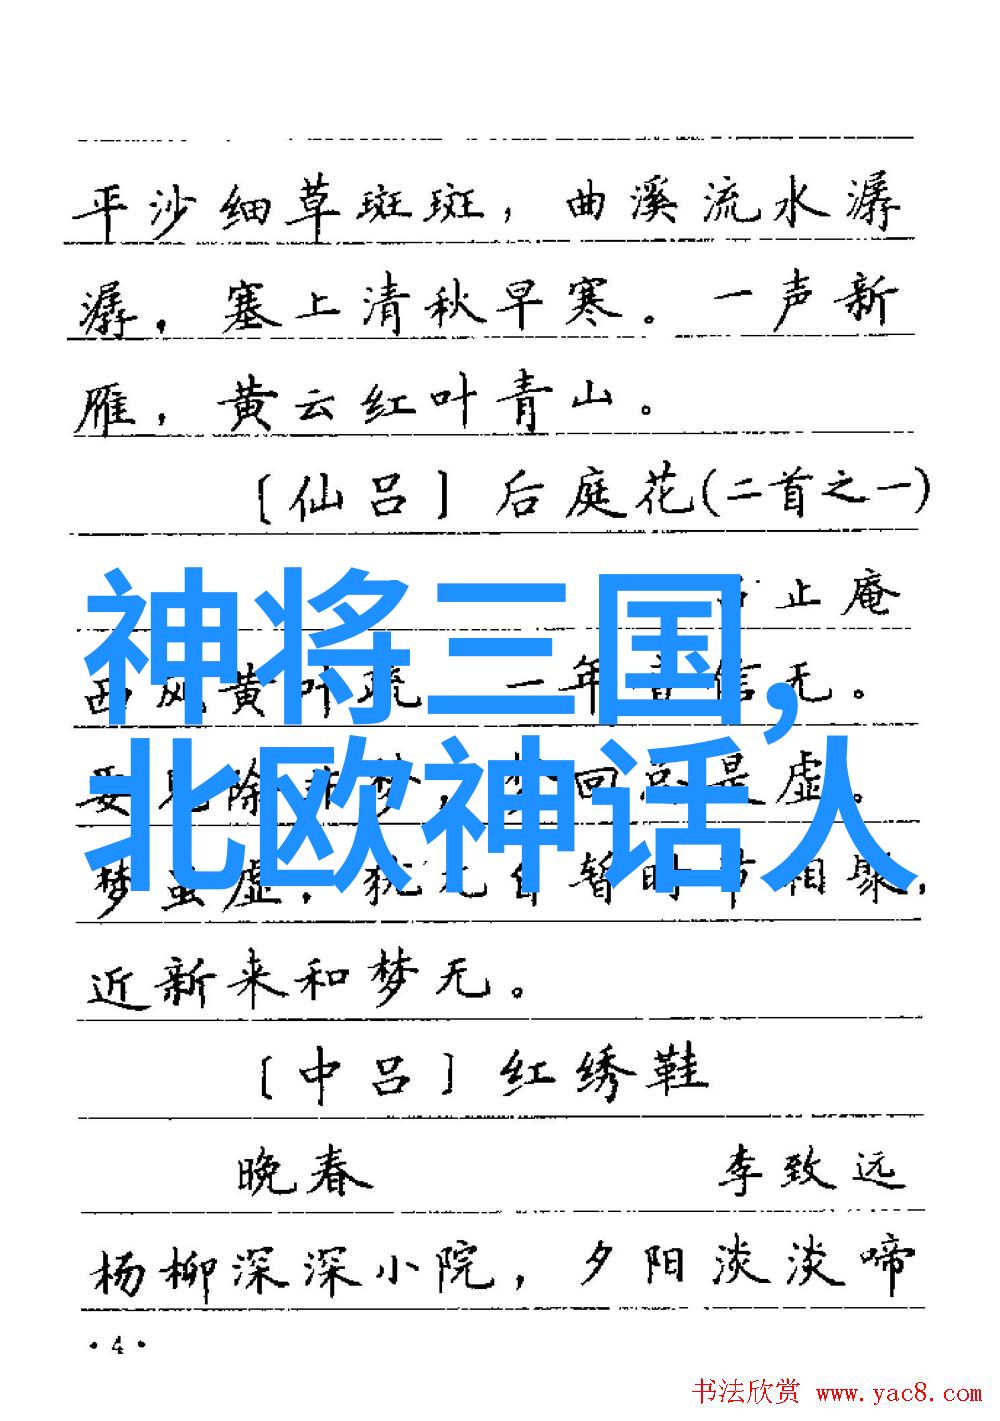 平沙细草斑斑，曲溪流水潺
潺，塞上清秋早寒。一声新
雁，黄云红叶青山。
〔仙吕〕后庭花(二首之一)
止庵
神将三国,
西风黄叶疏，一年音信无。
要见除非梦，梦回总是虚。
北欧神话人
梦虽虚，犹兀自暂时节相聚，
近新来和梦无。
〔中吕〕红绣鞋
晚春 李致远
杨柳深深小院，夕阳淡淡啼
·4·
书法欣赏 www.yac8.com